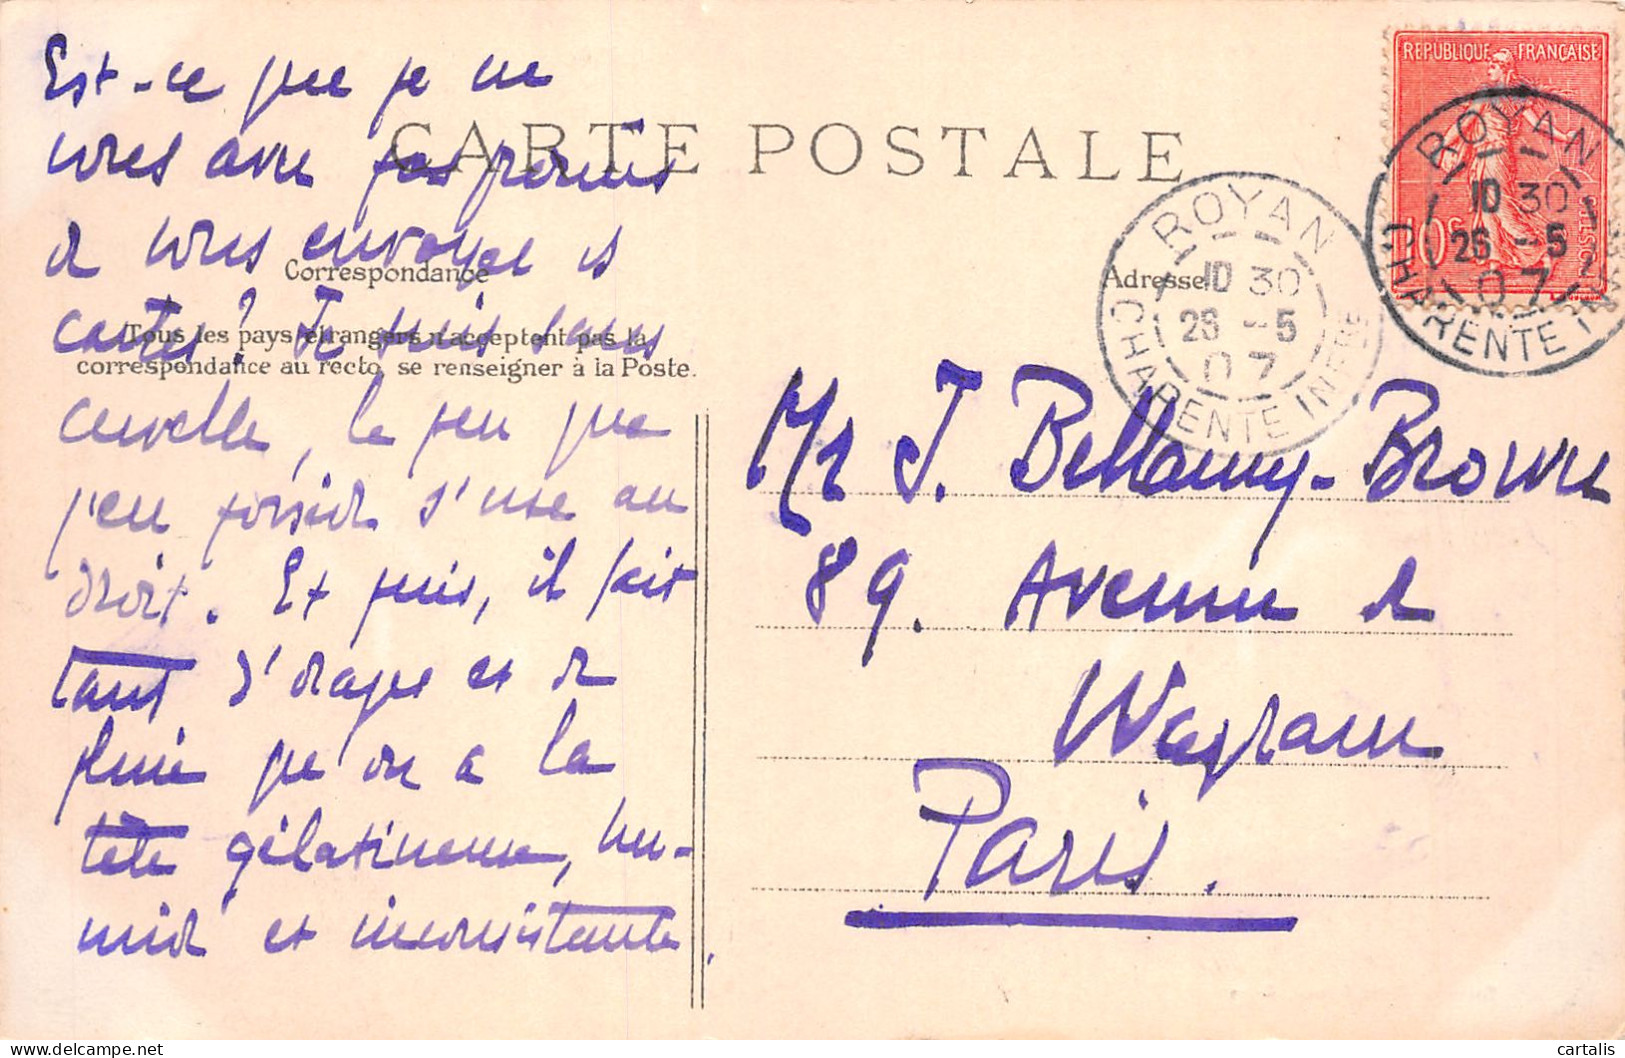 Est-ce que je ne
vous avais pas promis
de vous envoyer
cartes? Je suis sans
cervelle, le peu que
j'en possède s'use au
droit. Et puis, il fait
tant d'orages et de
pluie qu'on a la
tête gélatineuse, hu-
mide et inconsistante.
CARTE POSTALE
Correspondance
Tous les pays étrangers n'acceptent pas la
correspondance au recto, se renseigner à la Poste.
Adresse
Mr J. Bellamy-Brown
89. Avenue de
Wagram
Paris.
ROYAN
10 30
26 -5
07
CHARENTE INFRE
REPUBLIQUE FRANÇAISE
10c
ROYAN
10 30
26 -5
07
CHARENTE I
cartalis